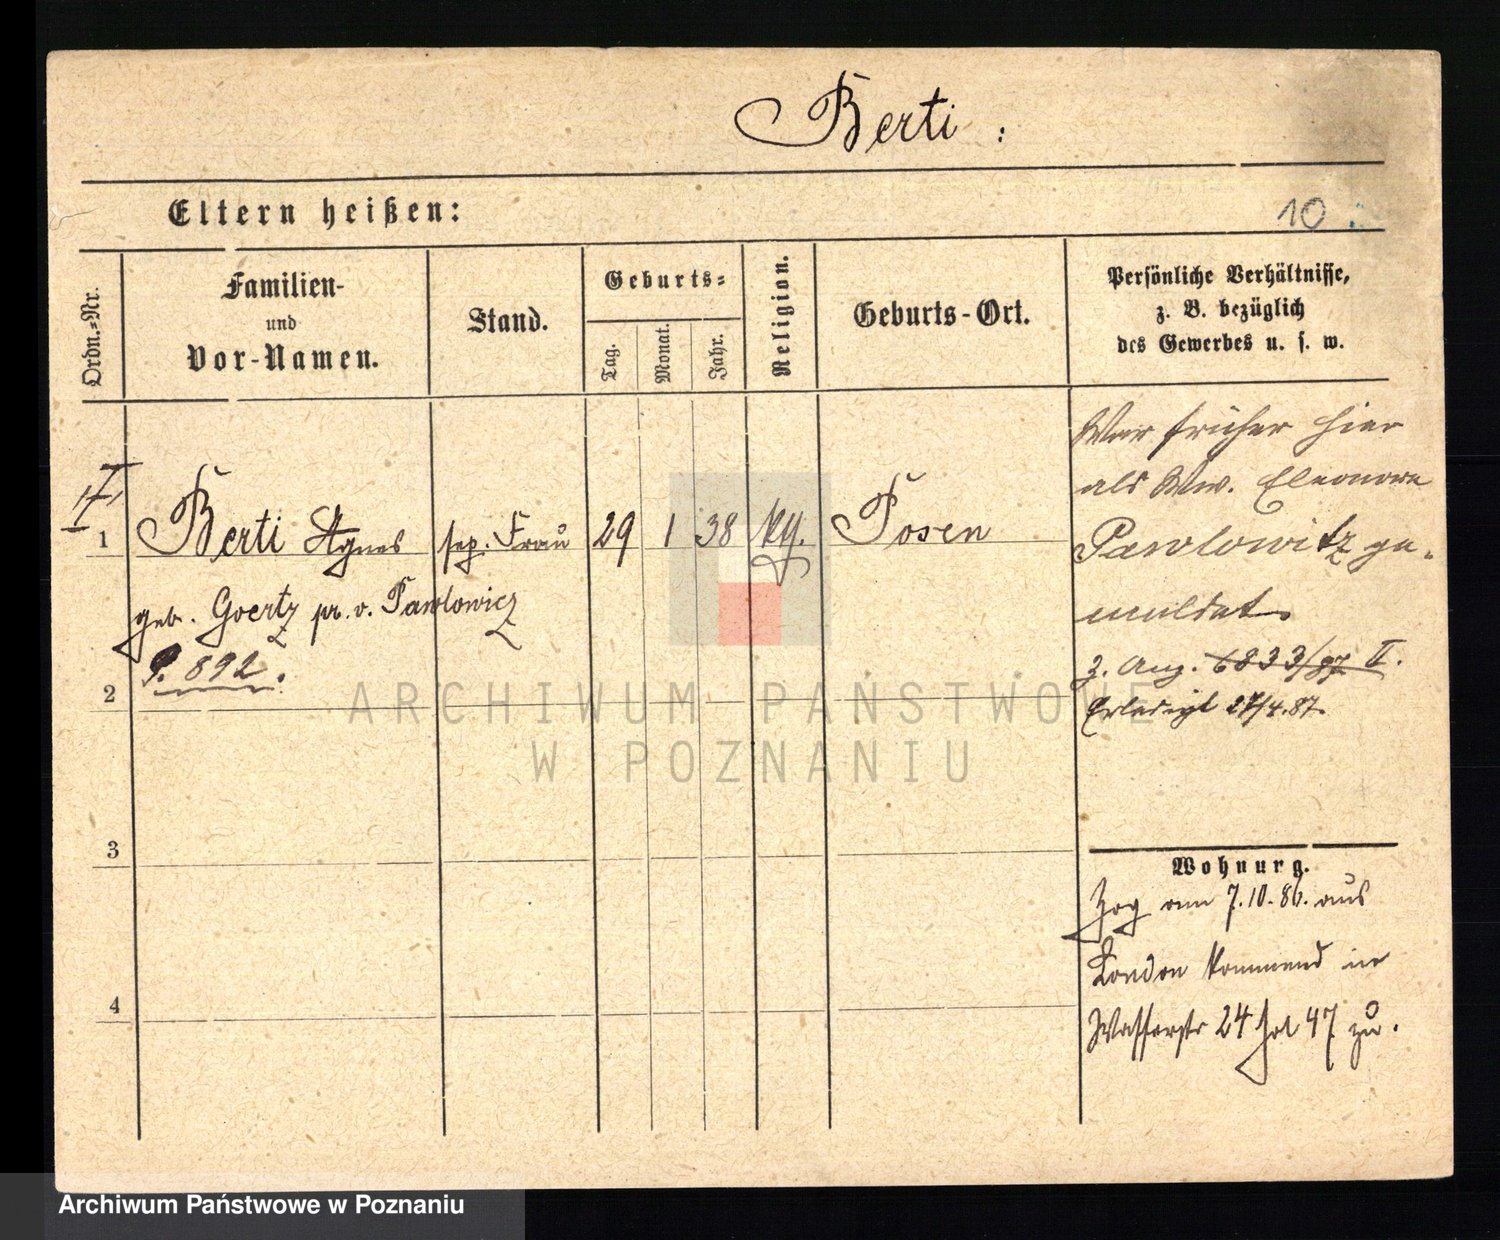 Berti :
Eltern heißen:
10
Ordn.=Nr.
Familien-
und
Vor-Namen.
Stand.
Geburts=
Tag.
Monat.
Jahr.
Religion.
Geburts-Ort.
Persönliche Verhältnisse,
z. B. bezüglich
des Gewerbes u. s. w.
1
Berti Agnes
sep. Frau
29
1
38
Posen
geb. Goertz pr. v. Pawlowicz
P. 892.
War früher hier
als Ww. Eleonore
Pawlowitz ge-
meldet.
z. Ang. 6833/87 II.
Erledigt 27/4.87.
2
3
4
Wohnung.
Zog am 7.10.86. aus
London kommend in
Wasserstr 24 hol 47 zu.
ARCHIWUM PAŃSTWOWE
W POZNANIU
Archiwum Państwowe w Poznaniu